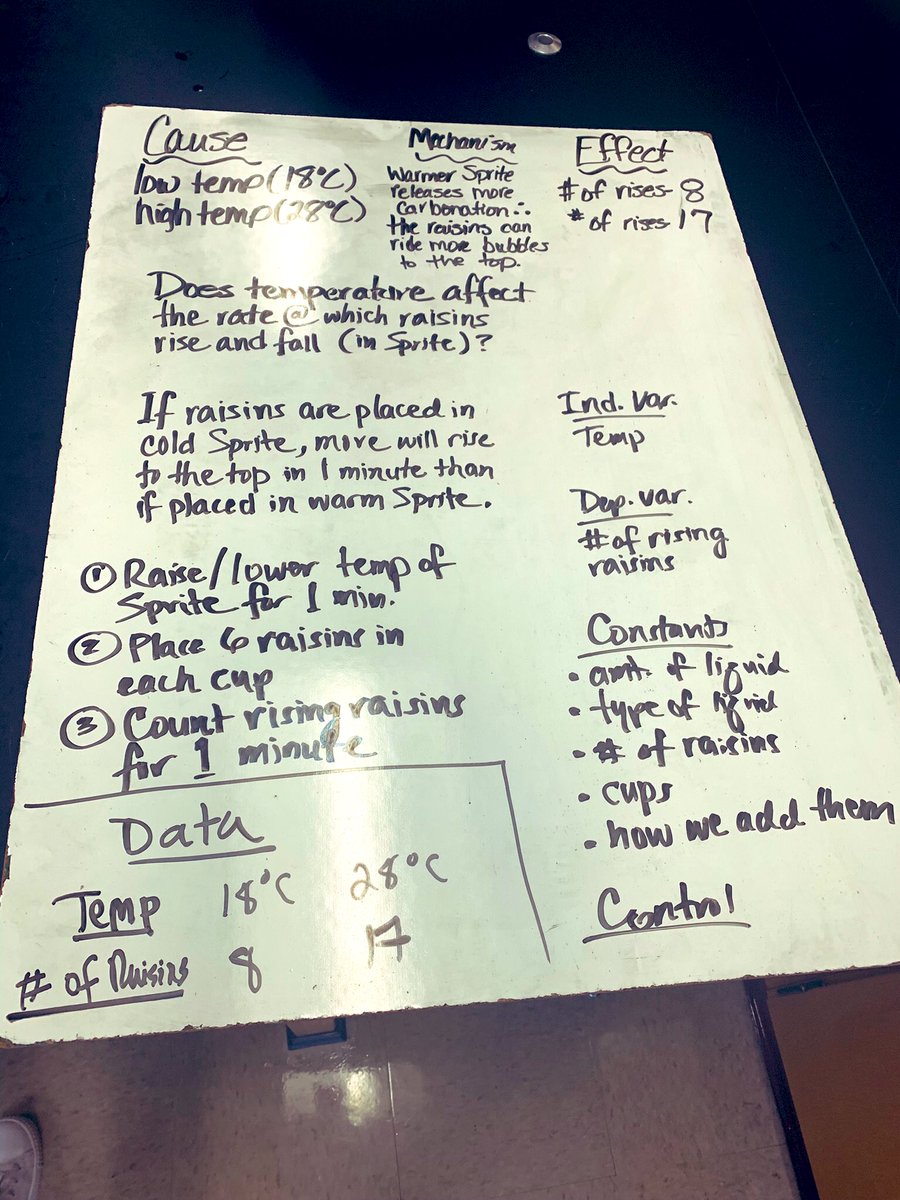 Cause
low temp (18°C)
high temp (28°C)
Mechanism
Warmer Sprite
releases more
carbonation ∴
the raisins can
ride more bubbles
to the top.
Effect
# of rises - 8
# of rises 17
Does temperature affect
the rate @ which raisins
rise and fall (in Sprite)?
If raisins are placed in
cold Sprite, more will rise
to the top in 1 minute than
if placed in warm Sprite.
① Raise/lower temp of
Sprite for 1 min.
② Place 6 raisins in
each cup
③ Count rising raisins
for 1 minute
Ind. Var.
Temp
Dep. var.
# of rising
raisins
Constants
• amt. of liquid
• type of liquid
• # of raisins
• cups
• how we add them
Control
Data
Temp 18°C 28°C
# of Raisins 8 17